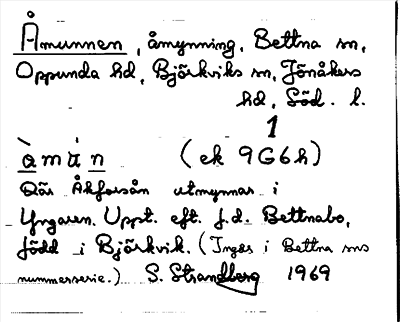 Åmunnen, åmynning, Bettna sn,
Oppunda hd, Björkviks sn, Jönåkers
hd, Söd. l.
1
àmu̇n (ek 9G6h)
Där Åkforsån utmynnar i
Yngaren. Uppt. eft. f.d. Bettnabo,
född i Björkvik. (Ingår i Bettna sns
nummerserie.) S. Strandberg 1969